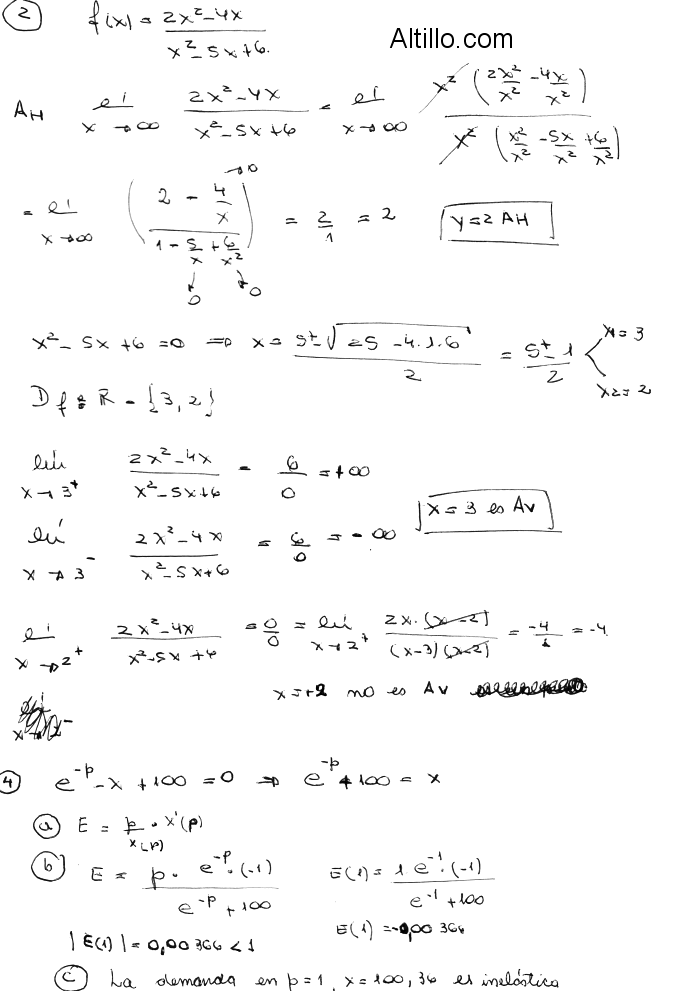 2 f(x) = (2x² - 4x)/(x² - 5x + 6.)
Altillo.com
AH lim x→∞ (2x² - 4x)/(x² - 5x + 6) = lim x→∞ x² (2x²/x² - 4x/x²) / x² (x²/x² - 5x/x² + 6/x²)
= lim x→∞ ((2 - 4/x)/(1 - 5/x + 6/x²)) = 2/1 = 2 y = 2 AH
→0
0 0
x² - 5x + 6 = 0 ⇒ x = (5 ± √(25 - 4.1.6))/2 = (5 ± 1)/2 x1 = 3
x2 = 2
Df: ℝ - {3, 2}
lím x→3⁺ (2x² - 4x)/(x² - 5x + 6) = 6/0 = +∞
x = 3 es AV
lím x→3⁻ (2x² - 4x)/(x² - 5x + 6) = 6/0 = -∞
lim x→2⁺ (2x² - 4x)/(x² - 5x + 6) = 0/0 = lím x→2⁺ 2x.(x-2)/(x-3)(x-2) = -4/1 = -4
x = +2 no es AV
4 e^-p - x + 100 = 0 ⇒ e^-p + 100 = x
a E = p/x(p) · x'(p)
b E = p · e^-p · (-1) / (e^-p + 100) E(1) = 1 e^-1 · (-1) / (e^-1 + 100)
E(1) = -0,00366
|E(1)| = 0,00366 < 1
c La demanda en p = 1, x = 100,36 es inelástica